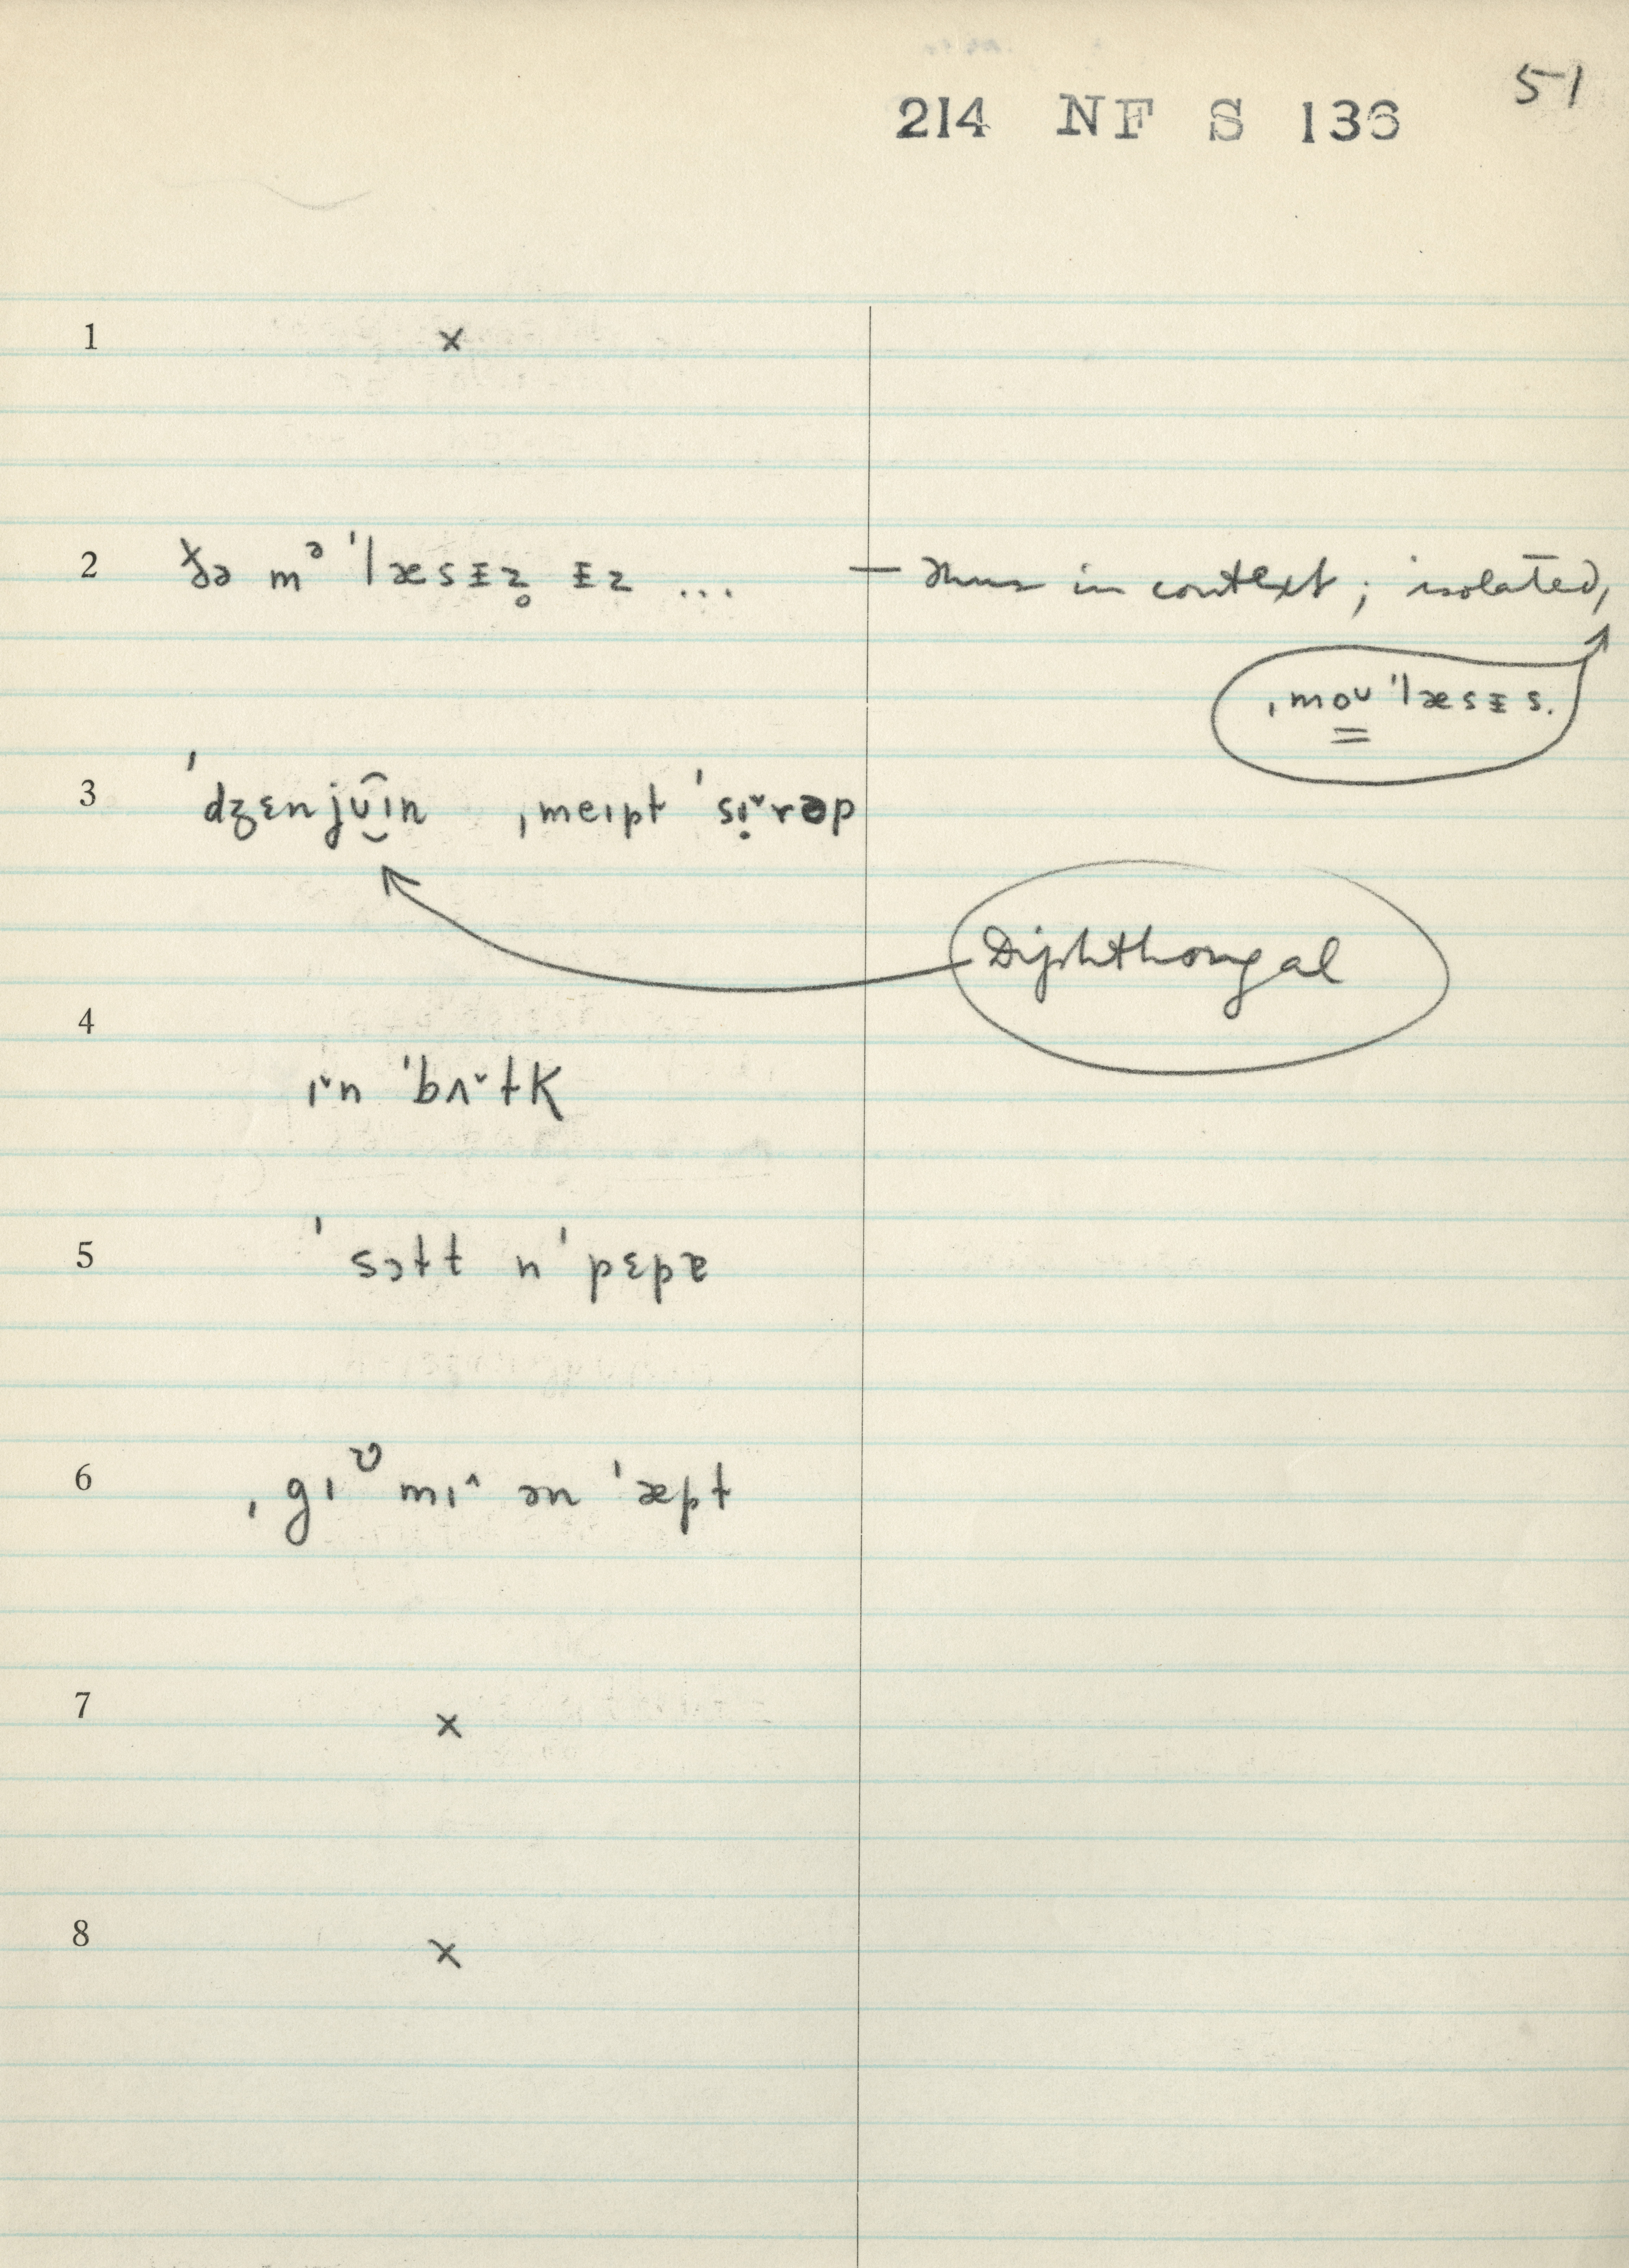 51
214 NF S 136
1 ×
2 ðə mᵊ ˈlæsɪ̵z̥ ɪ̵z ... — thus in context; isolated,
ˌmoʊ ˈlæsɪ̵s.
3 ˈdʒɛnjʊ̯̂ɪn ˌmeɪpɫ ˈsɪ̣˅rəp
Diphthongal
4 ɪ˅n ˈbʌ˅tɫK
5 ˈsɔɫt n̩ ˈpɛpɐ
6 ˌgɪᶷ mɪ˄ ən ˈæpɫ
7 ×
8 ×